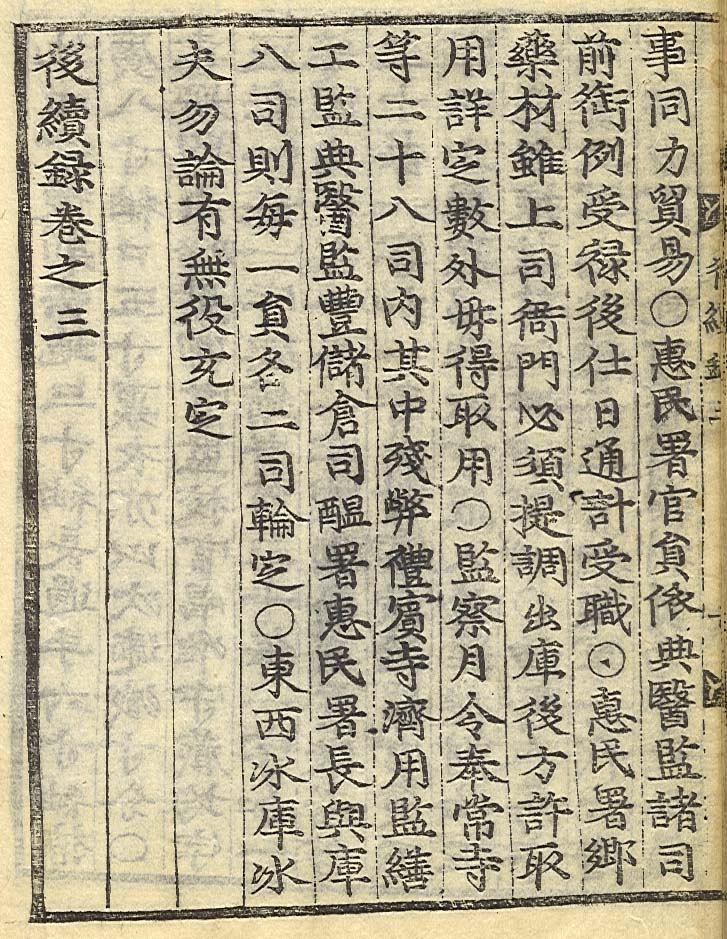 事同力貿易○惠民署官員依典醫監諸司
前銜例受祿後仕日通計受職○惠民署鄉
藥材雖上司衙門必須提調出庫後方許取
用詳定數外毋得取用○監察月令奉常寺
等二十八司內其中殘弊禮賓寺濟用監繕
工監典醫監豐儲倉司醞署惠民署長興庫
八司則每一員各二司輪定○東西氷庫氷
夫勿論有無役充定
後續錄卷之三